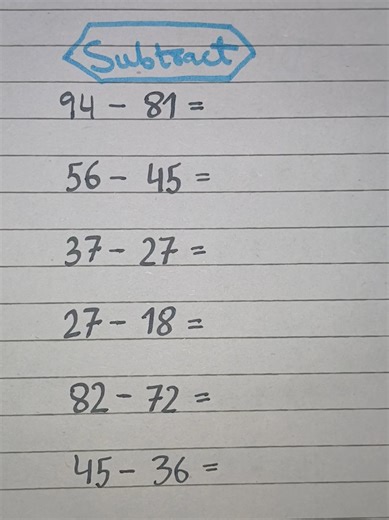 Subtract
94 - 81 =
56 - 45 =
37 - 27 =
27 - 18 =
82 - 72 =
45 - 36 =